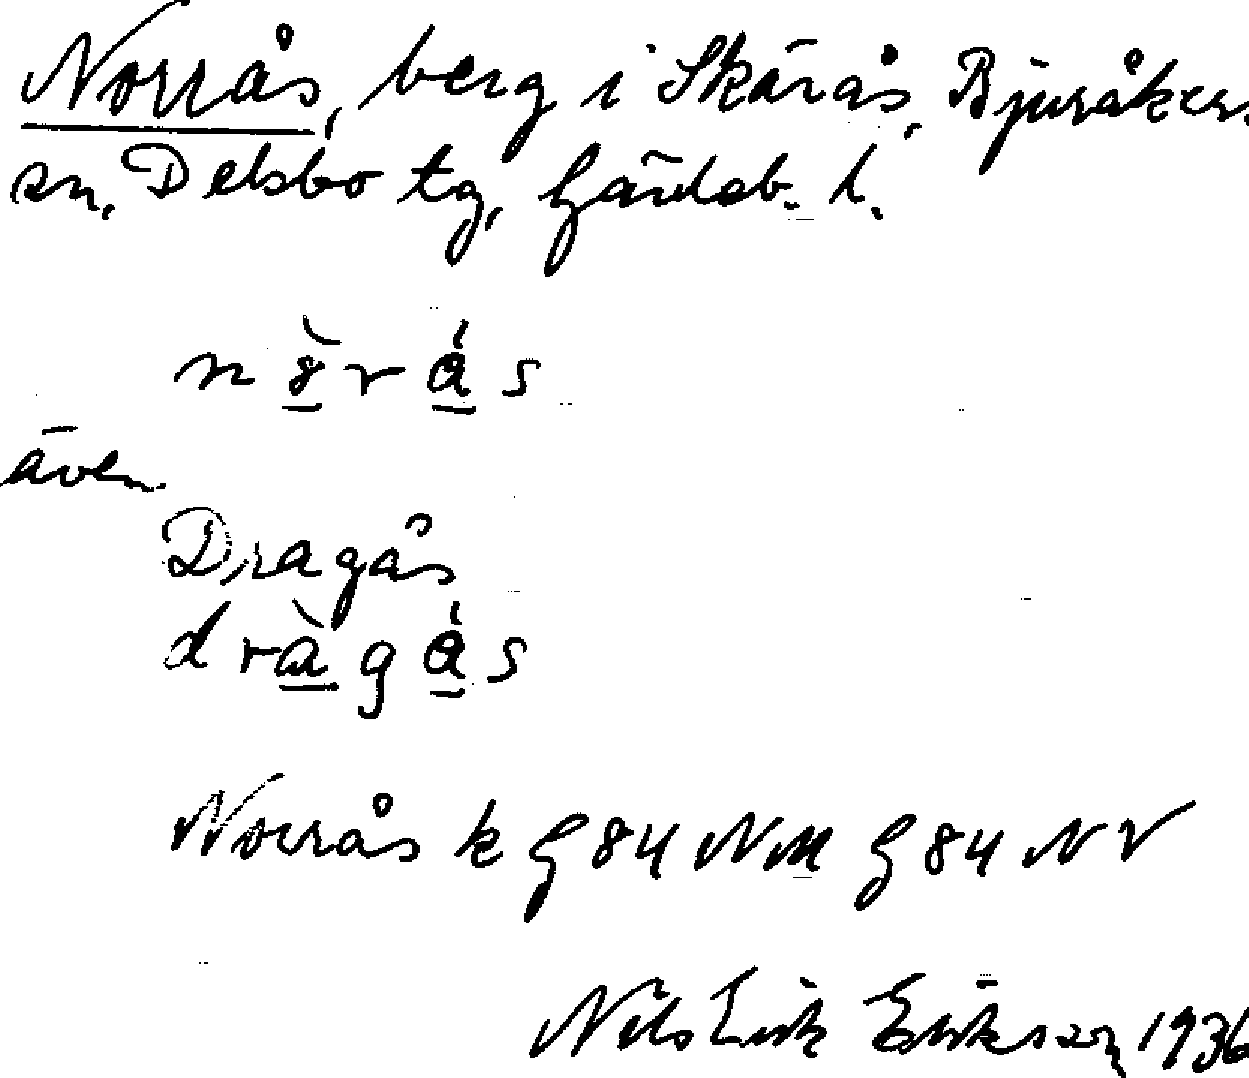 Norrås, berg i Skärås, Bjuråkers
sn, Delsbo tg, Gävleb. l.
även
Dragås
Norrås k G 84 NM G 84 NV
Nils Erik Erikson 1936